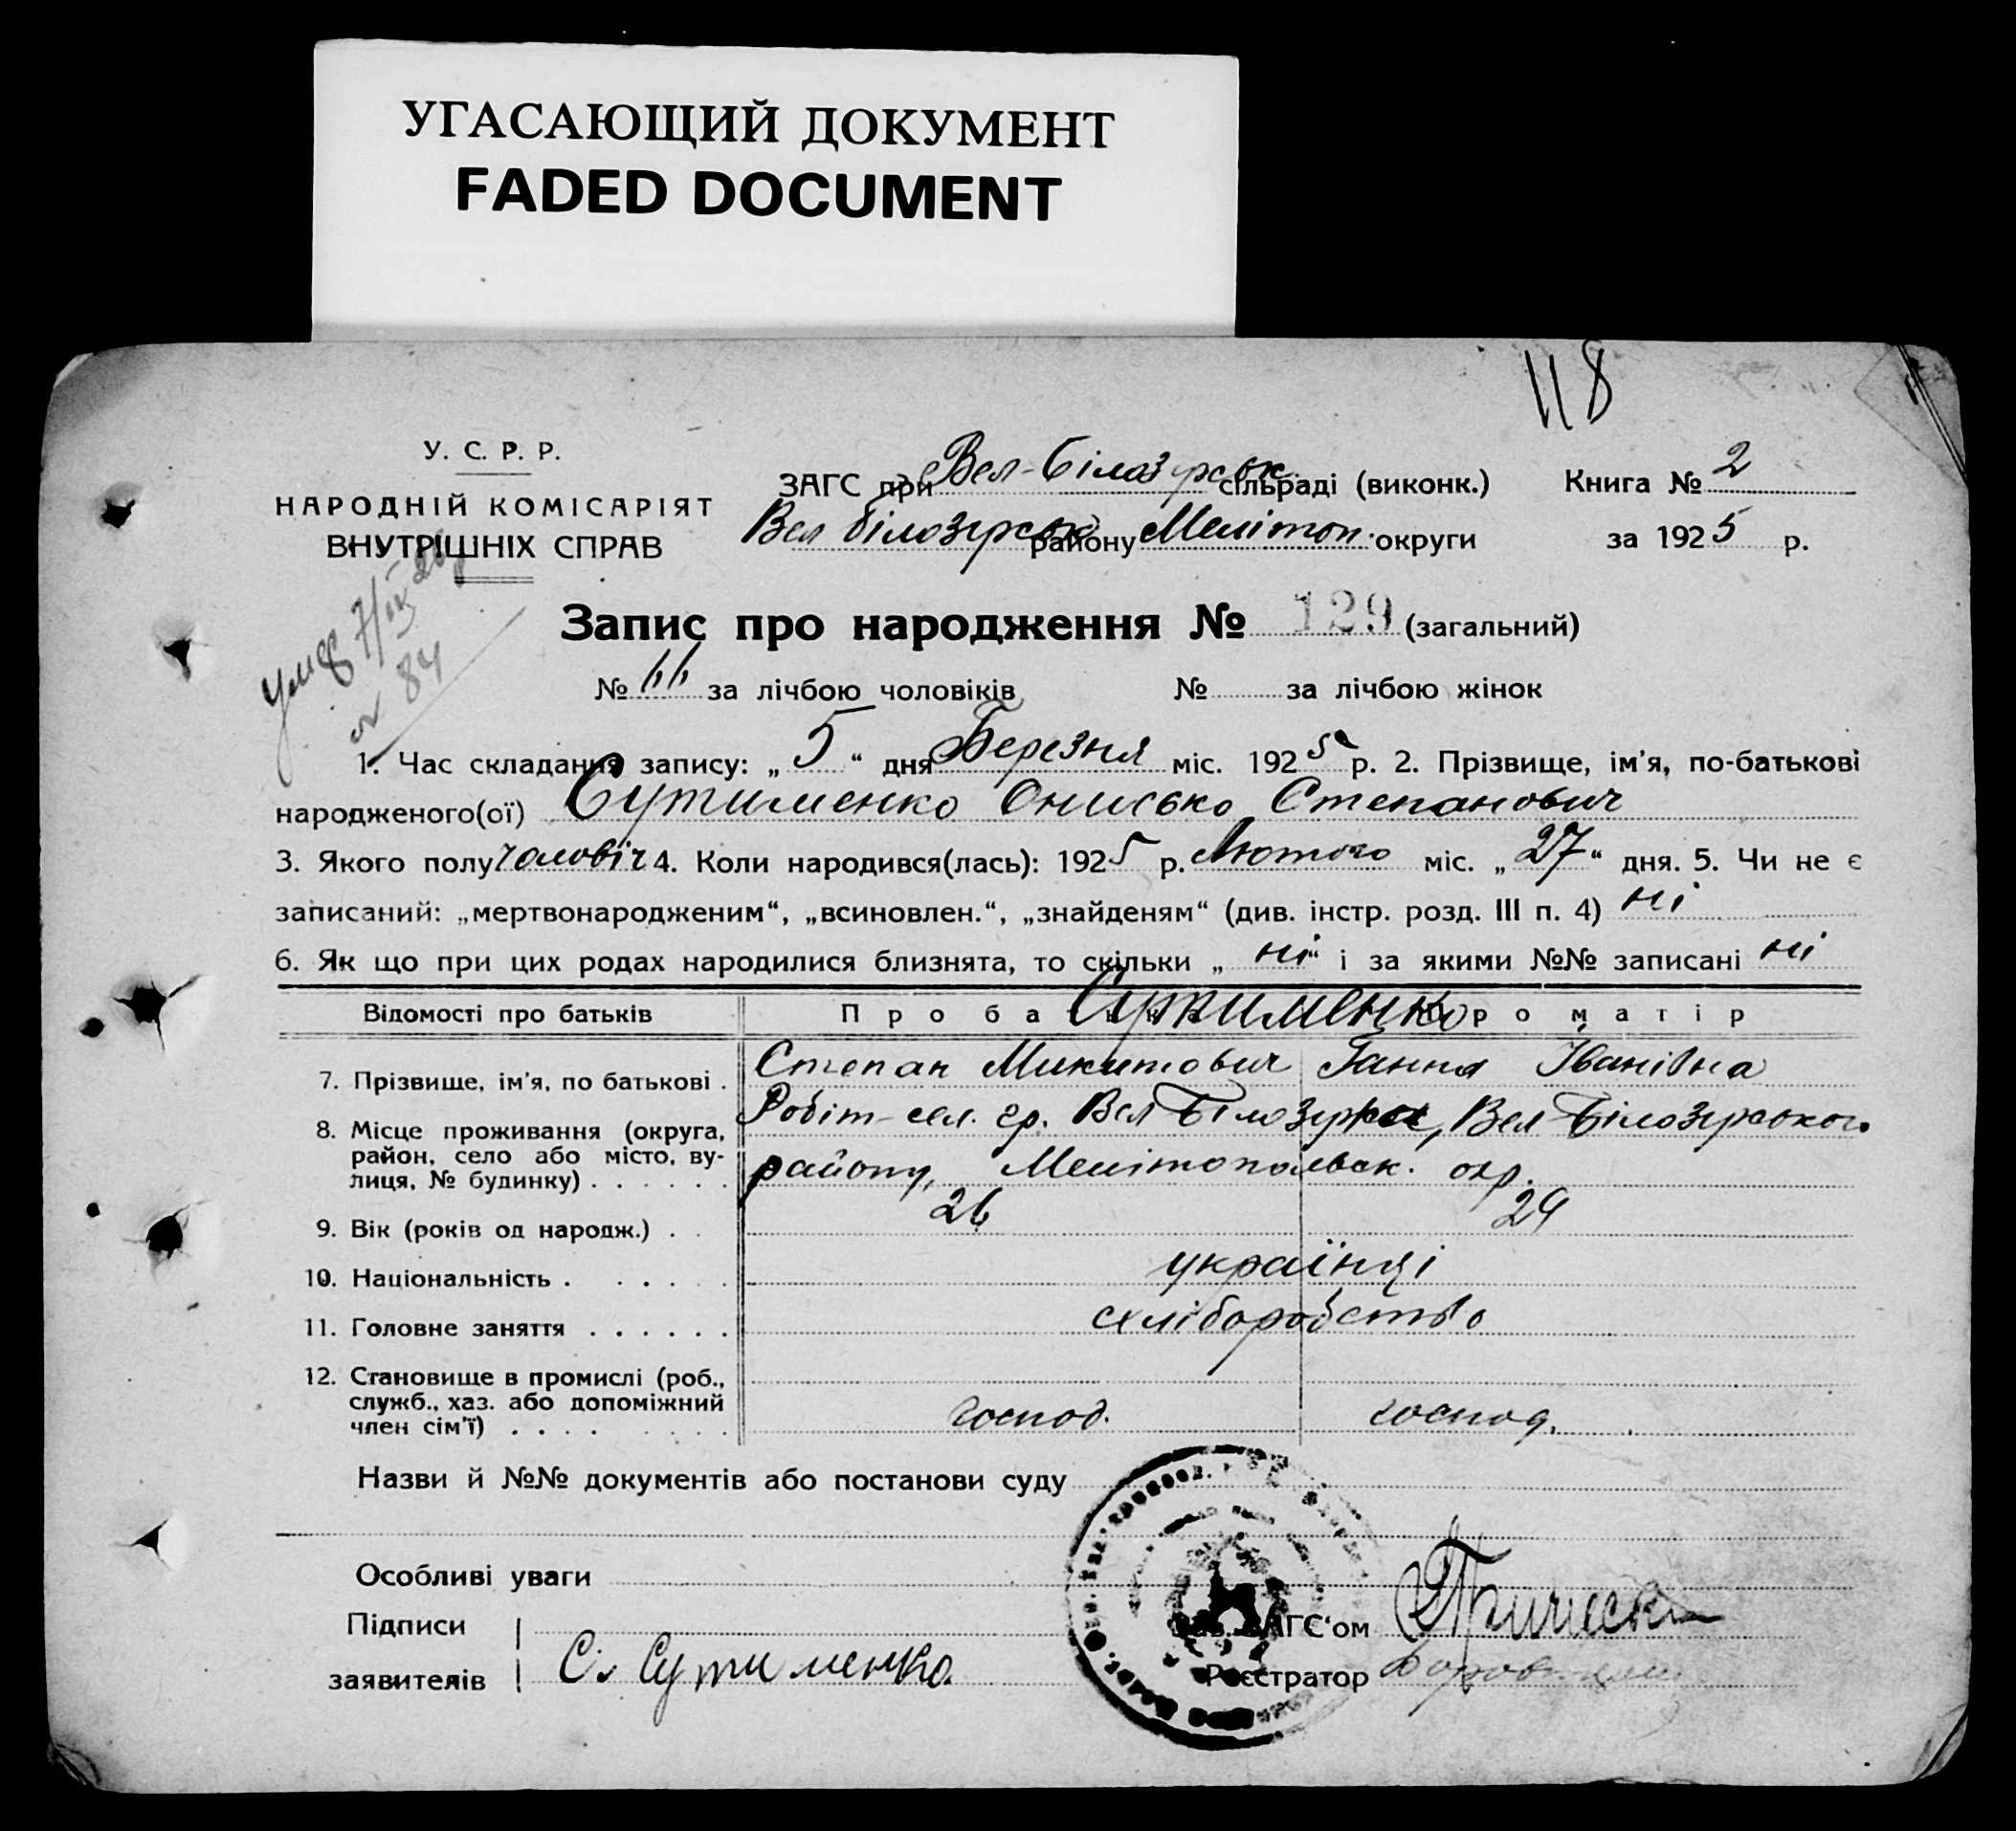 УГАСАЮЩИЙ ДОКУМЕНТ
FADED DOCUMENT
118
У. С. Р. Р.
НАРОДНІЙ КОМІСАРІЯТ
ВНУТРІШНІХ СПРАВ
ЗАГС при Вел-Білозірськ сільраді (виконк.) Книга № 2
Вел Білозірськ району Мелітоп. округи за 1925 р.
Запис про народження № 129 (загальний)
№ 66 за лічбою чоловіків № за лічбою жінок
№ 84
1. Час складання запису: „5“ дня Березня міс. 1925 р. 2. Прізвище, ім’я, по-батькові
народженого(ої) Сутименко Онисько Степанович
3. Якого полу чоловіч 4. Коли народився(лась): 1925 р. Лютого міс. „27“ дня. 5. Чи не є
записаний: „мертвонародженим“, „всиновлен.“, „знайденям“ (див. інстр. розд. III п. 4) ні
6. Як що при цих родах народилися близнята, то скільки „ні“ і за якими №№ записані ні
Відомості про батьків Про ба Сутименко Про матір
7. Прізвище, ім’я, по батькові . Степан Микитович Ганна Іванівна
8. Місце проживання (округа, Робіт-сел. гр. Вел Білозірка, Вел-Білозірського
район, село або місто, ву-
лиця, № будинку) . . . . . . району, Мелітопольск. окр.
9. Вік (років од народж.) . . 26 29
10. Національність . . . . . українці
11. Головне заняття . . . . . . схліборобство
12. Становище в промислі (роб.,
служб., хаз. або допоміжний
член сім’ї) . . . . . . . . господ. господ.
Назви й №№ документів або постанови суду
Особливі уваги
Підписи
Зав. ЗАГС‘ом
заявителів С. Сутименко. Реєстратор